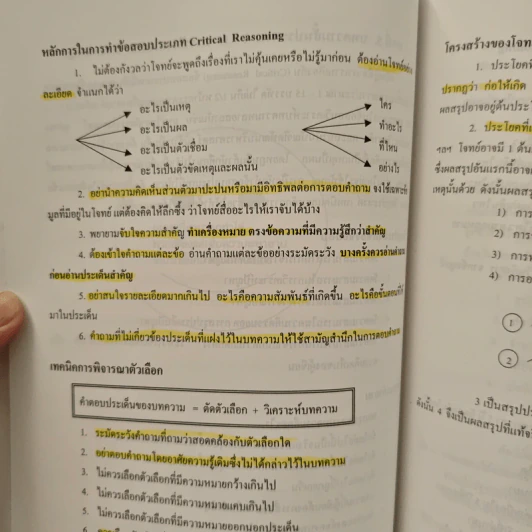 หลักการในการทำข้อสอบประเภท Critical Reasoning
1. ไม่ต้องกังวลว่าโจทย์จะพูดถึงเรื่องที่เราไม่คุ้นเคยหรือไม่รู้มาก่อน ต้องอ่านโจทย์
ละเอียด จำแนกได้ว่า
อะไรเป็นเหตุ
อะไรเป็นผล
อะไรเป็นตัวเชื่อม
อะไรเป็นตัวขัดเหตุและผลนั้น
ใคร
ทำอะไร
ที่ไหน
อย่างไร
2. อย่านำความคิดเห็นส่วนตัวมาปะปนหรือมามีอิทธิพลต่อการตอบคำถาม จงใช้เฉพาะ
มูลที่มีอยู่ในโจทย์ แต่ต้องคิดให้ลึกซึ้ง ว่าโจทย์สื่ออะไรให้เราจับได้บ้าง
3. พยายามจับใจความสำคัญ ทำเครื่องหมาย ตรงข้อความที่มีความรู้สึกว่าสำคัญ
4. ต้องเข้าใจคำถามแต่ละข้อ อ่านคำถามแต่ละข้ออย่างระมัดระวัง บางครั้งควรอ่าน
ก่อนอ่านประเด็นสำคัญ
5. อย่าสนใจรายละเอียดมากเกินไป อะไรคือความสัมพันธ์ที่เกิดขึ้น อะไรคือขั้นตอนที่
มาในประเด็น
6. คำถามที่ไม่เกี่ยวข้องประเด็นที่แฝงไว้ในบทความให้ใช้สามัญสำนึกในการตอบคำถาม
เทคนิคการพิจารณาตัวเลือก
คำตอบประเด็นของบทความ = ตัดตัวเลือก + วิเคราะห์บทความ
1. ระมัดระวังคำถามที่ถามว่าสอดคล้องกับตัวเลือกใด
2. อย่าตอบคำถามโดยอาศัยความรู้เดิมซึ่งไม่ได้กล่าวไว้ในบทความ
3. ไม่ควรเลือกตัวเลือกที่มีความหมายกว้างเกินไป
4. ไม่ควรเลือกตัวเลือกที่มีความหมายแคบเกินไป
5. ไม่ควรเลือกตัวเลือกที่มีความหมายออกนอกประเด็น
6.
โครงสร้างของโจท
1. ประโยคที่
ปรากฏว่า ก่อให้เกิด
ผลสรุปอาจอยู่ต้นประโ
2. ประโยคที่
ฯลฯ โจทย์อาจมี 1 ด้าน
ซึ่งผลสรุปอันแรกนี้อาจ
เหตุนั้นด้วย ดังนั้นผลส
1) การ
2) การ
3) การ
4) การ
1
2
3 เป็นสรุป
ดังนั้น 4 จึงเป็นผลสรุปที่แท้จ